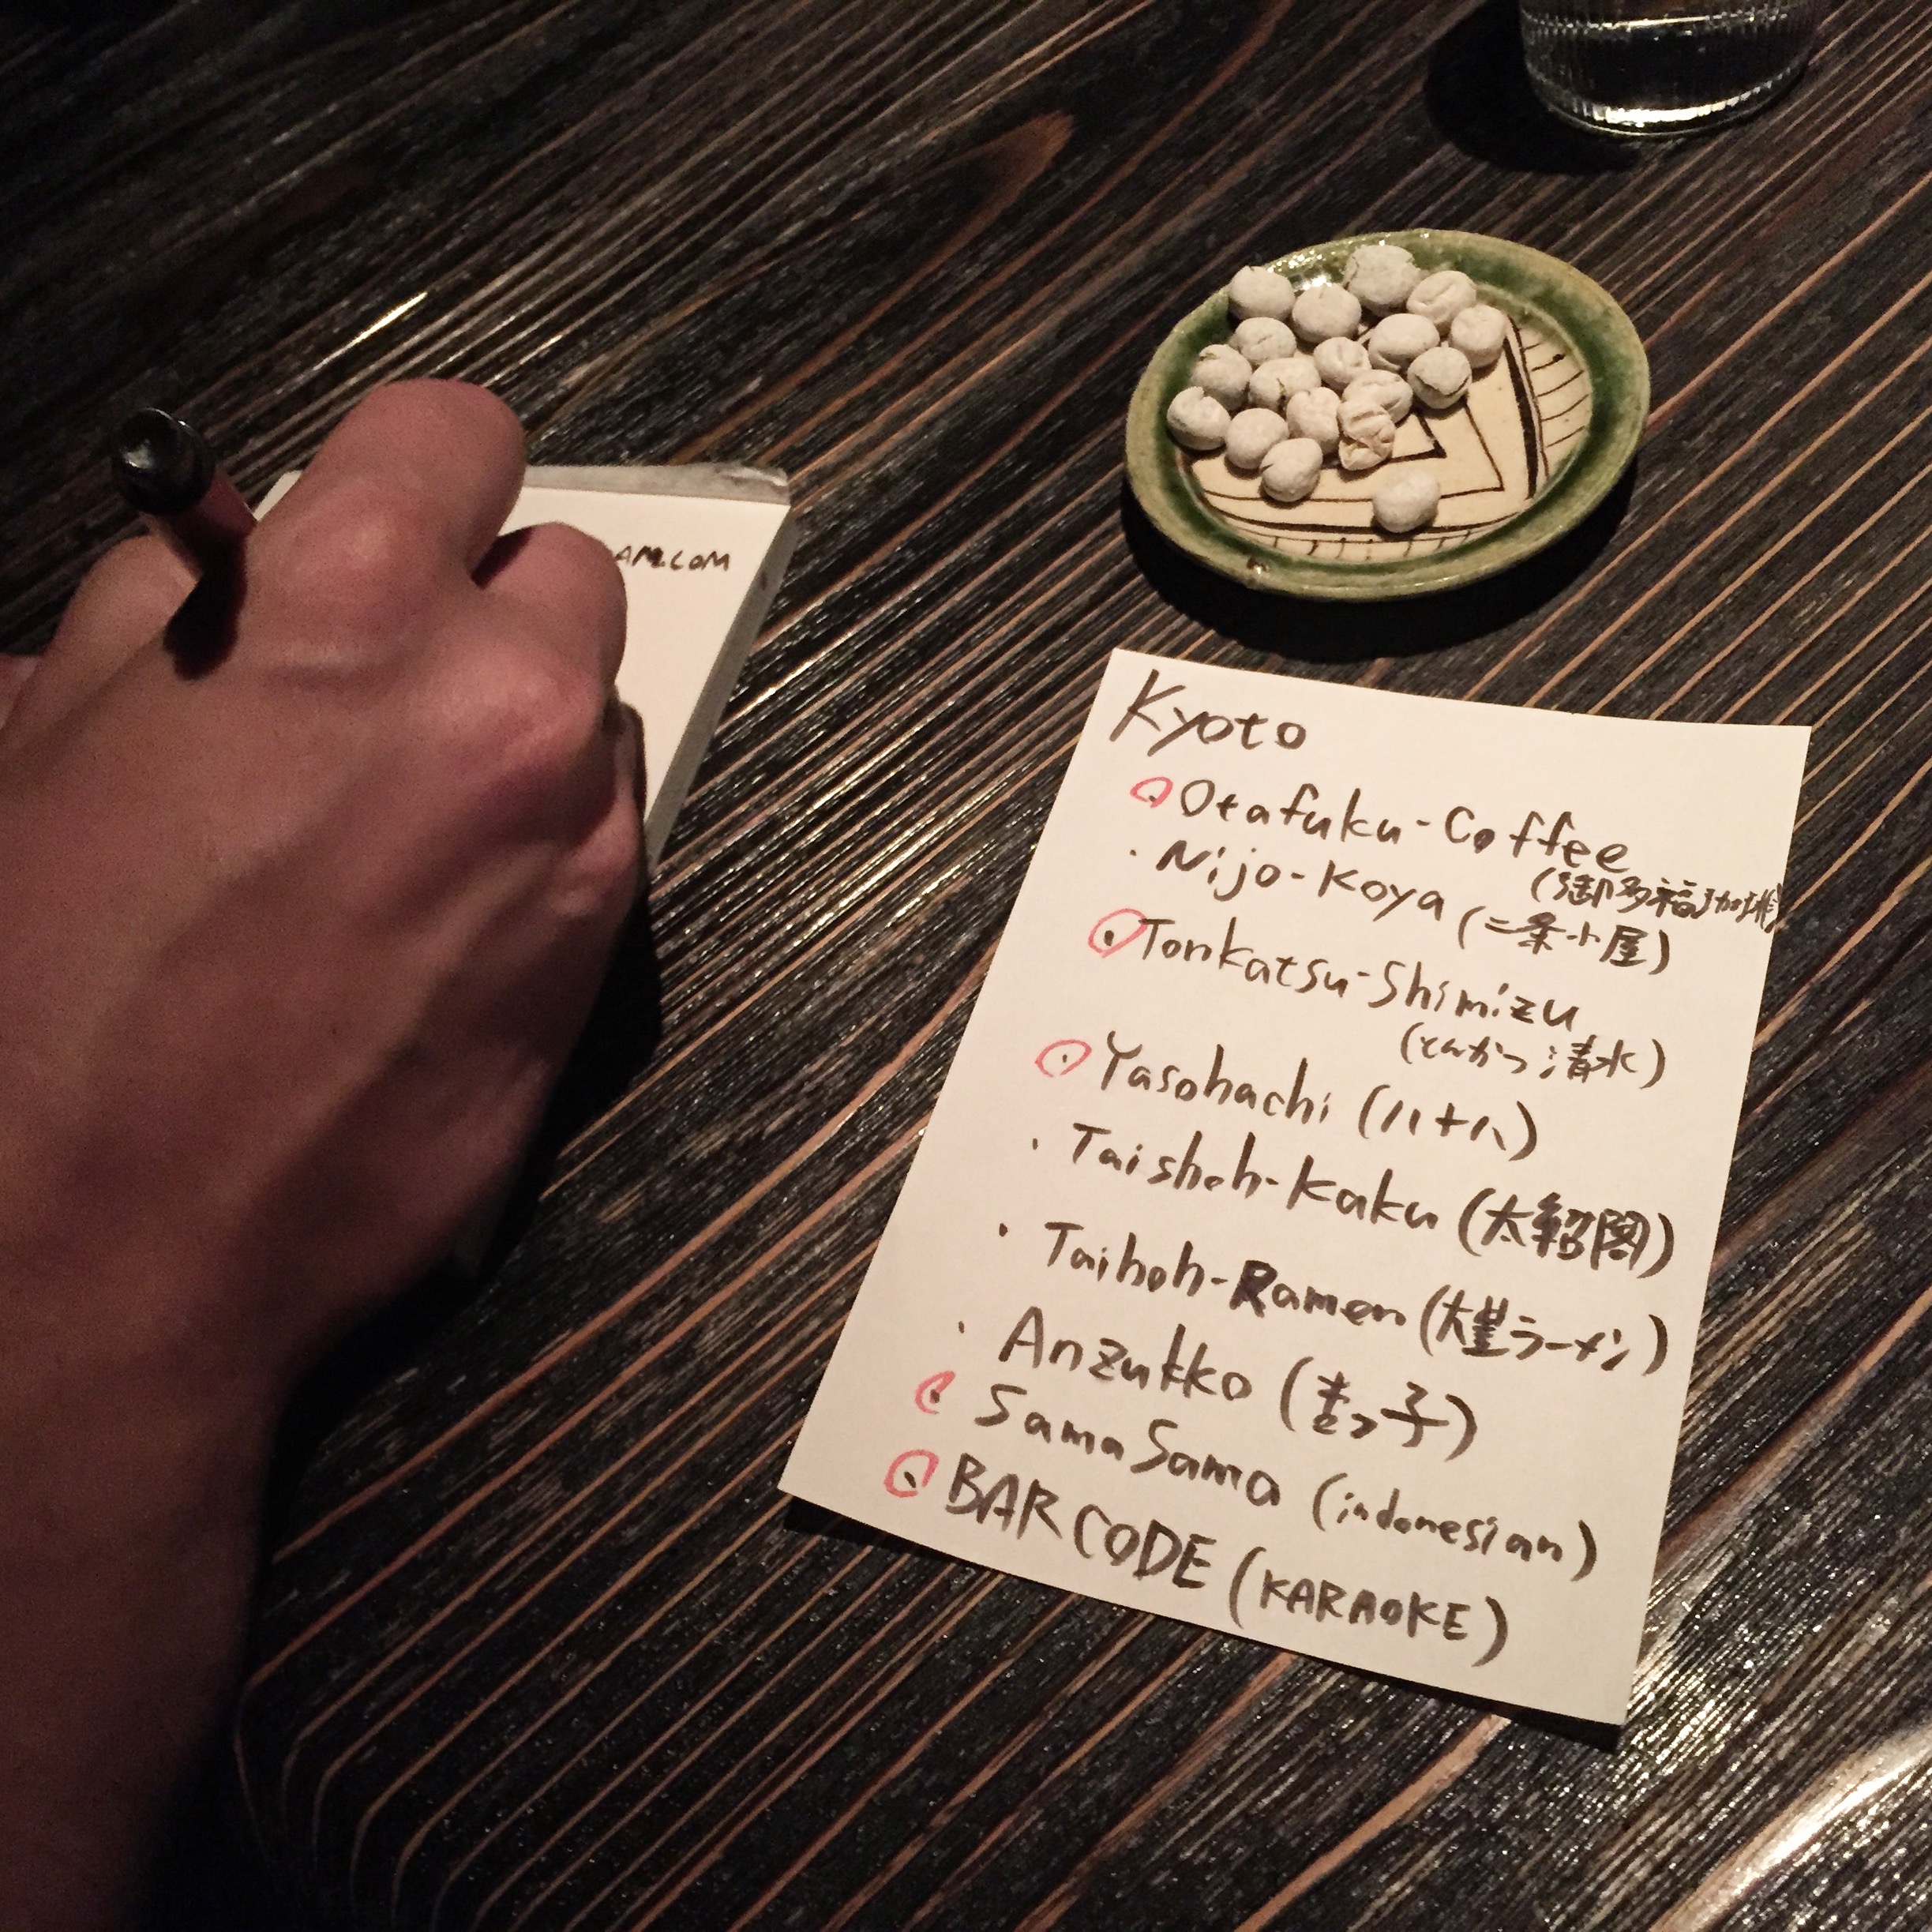 AM.COM
Kyoto
Otafuku-Coffee
(御多福珈琲)
・Nijo-Koya (二条小屋)
・Tonkatsu-Shimizu
(とんかつ清水)
・Yasohachi (八十八)
・Taishoh-Kaku (太韶閣)
・Taihoh-Ramen (大豊ラーメン)
・Anzukko (杏っ子)
・Sama Sama (indonesian)
・BAR CODE (KARAOKE)